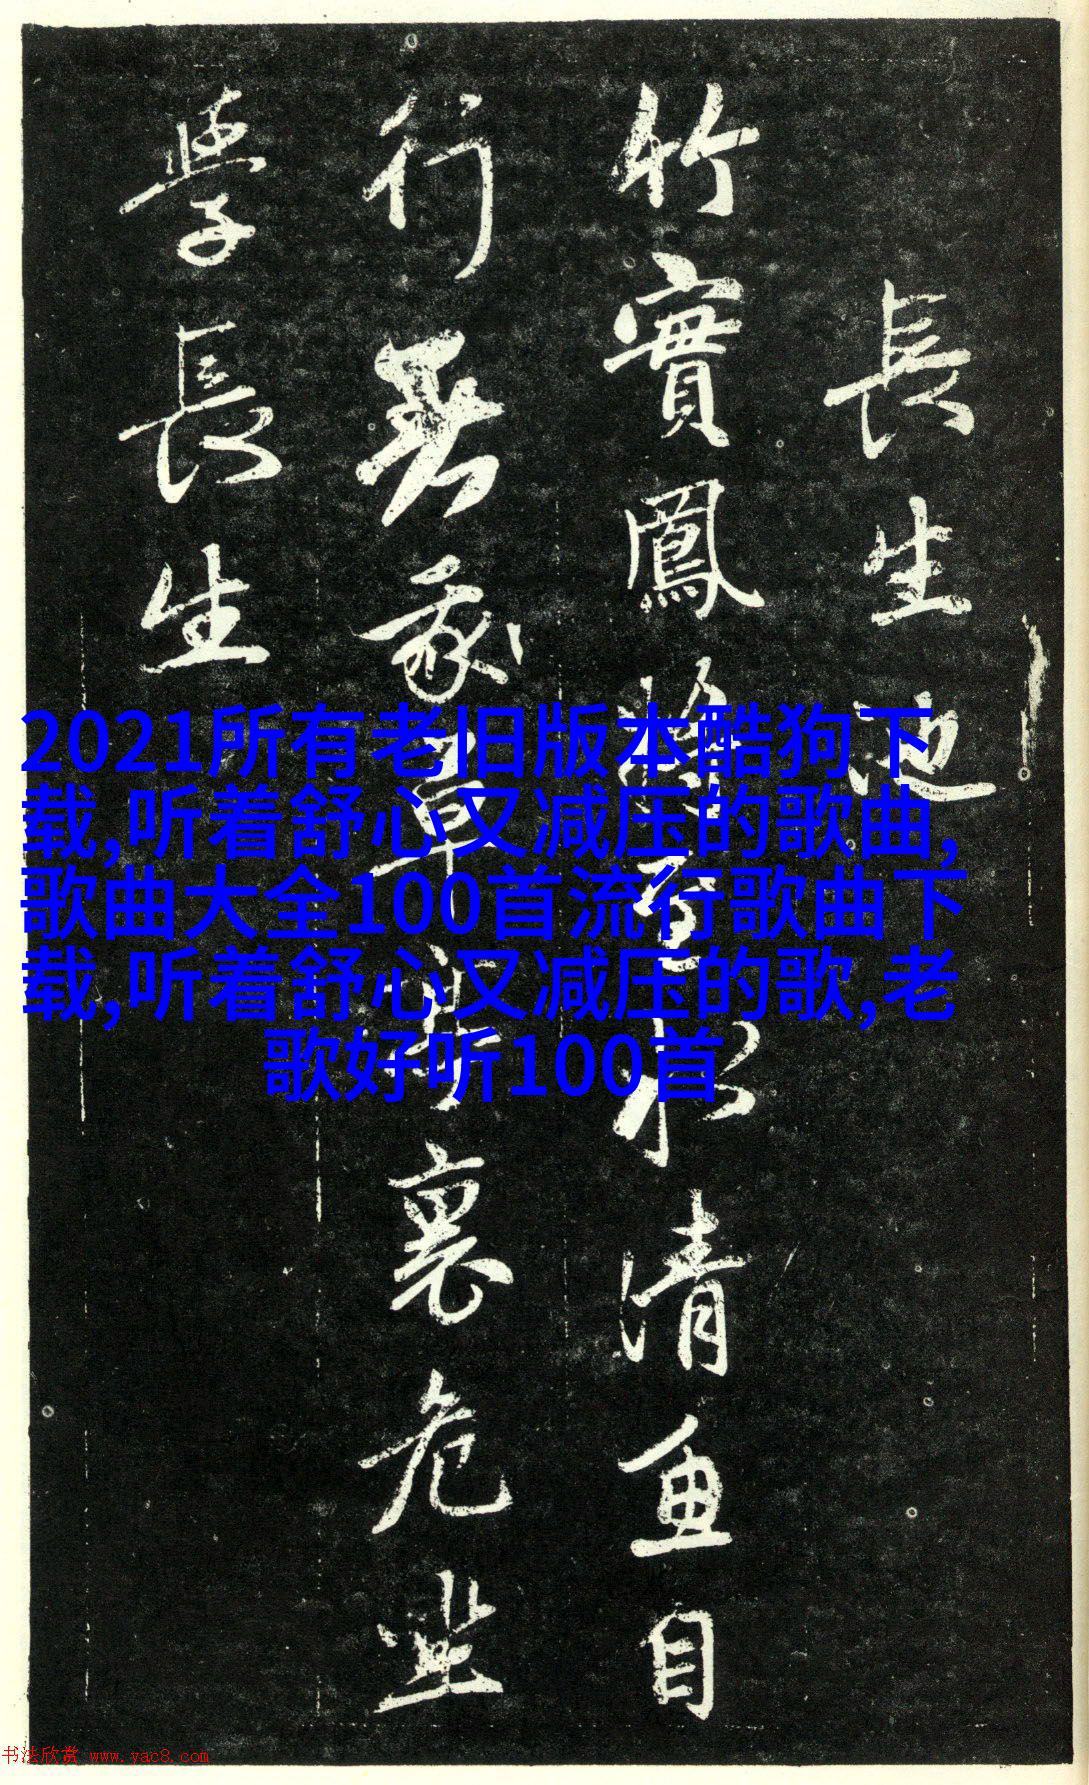 長生池
竹實鳳至水清魚自
行裏危坐
學長生
2021所有老旧版本酷狗下
载,听着舒心又减压的歌曲,
歌曲大全100首流行歌曲下
载,听着舒心又减压的歌,老
歌好听100首
书法欣赏 www.yac8.com